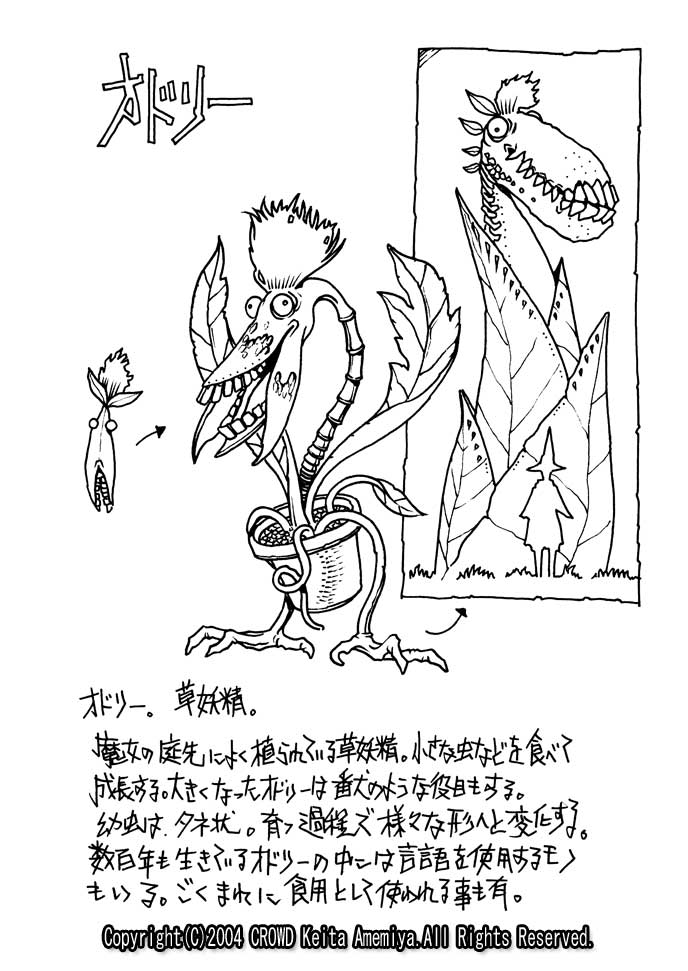 オドリー
オドリー。草妖精。
魔女の庭先によく植られている草妖精。小さな虫などを食べて
成長する。大きくなったオドリーは番犬のような役目もする。
幼虫は、タネ状。育つ過程で様々な形へと変化する。
数百年も生きているオドリーの中には言語を使用するモノ
もいる。ごくまれに食用として使われる事も有。
Copyright(C)2004 CROWD Keita Amemiya.All Rights Reserved.